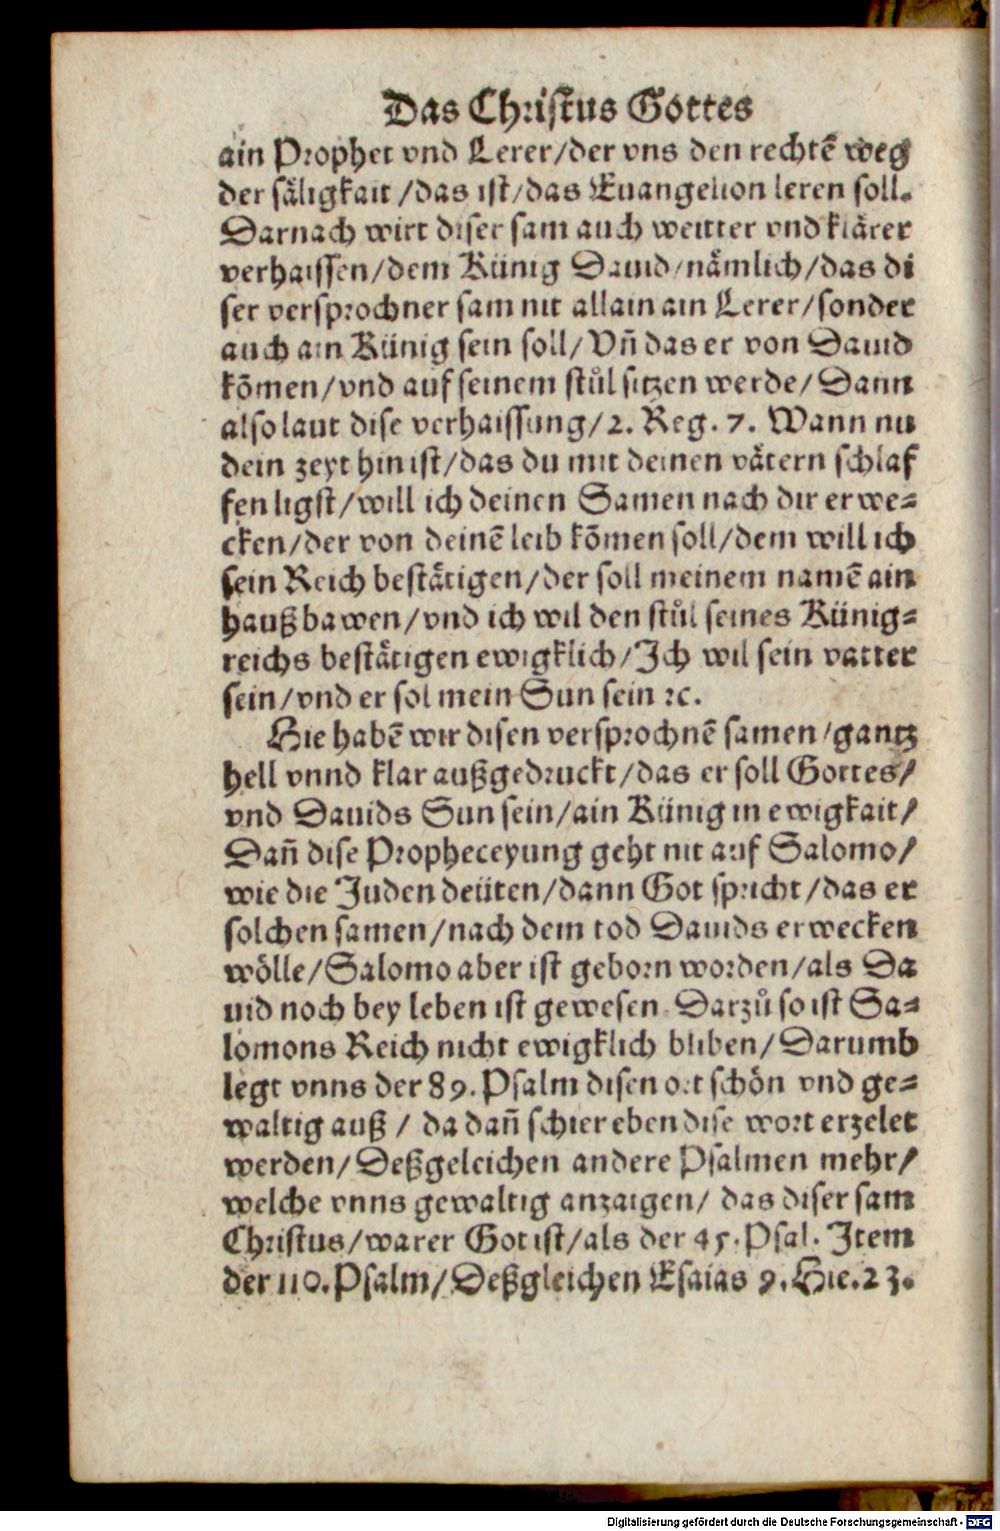 Das Christus Gottes
ain Prophet vnd Lerer/der vns den rechtē weg
der säligkait/das ist/das Euangelion leren soll.
Darnach wirt diser sam auch weitter vnd klärer
verhaissen/dem Künig Dauid/nämlich/das di
ser versprochner sam nit allain ain Lerer/sonder
auch ain Künig sein soll/Vn̄ das er von Dauid
kōmen/vnd auf seinem stůl sitzen werde/Dann
also laut dise verhaissung/2. Reg. 7. Wann nu
dein zeyt hin ist/das du mit deinen vätern schlaf
fen ligst/will ich deinen Samen nach dir erwe-
cken/der von deinē leib kōmen soll/dem will ich
sein Reich bestätigen/der soll meinem namē ain
hauß bawen/vnd ich wil den stůl seines Künig-
reichs bestätigen ewigklich/Ich wil sein vatter
sein/vnd er sol mein Sun sein ꝛc.
Hie habē wir disen versprochnē samen/gantz
hell vnnd klar außgedruckt/das er soll Gottes/
vnd Dauids Sun sein/ain Künig in ewigkait/
Dan̄ dise Propheceyung geht nit auf Salomo/
wie die Juden deüten/dann Got spricht/das er
solchen samen/nach dem tod Dauids erwecken
wölle/Salomo aber ist geborn worden/als Da
uid noch bey leben ist gewesen. Darzů so ist Sa-
lomons Reich nicht ewigklich bliben/Darumb
legt vnns der 89. Psalm disen ort schön vnd ge-
waltig auß/da dan̄ schier eben dise wort erzelet
werden/Deßgeleichen andere Psalmen mehr/
welche vnns gewaltig anzaigen/das diser sam
Christus/warer Got ist/als der 45. Psal. Item
der 110. Psalm/Deßgleichen Esaias 9. Hie. 23.
Digitalisierung gefördert durch die Deutsche Forschungsgemeinschaft - DFG